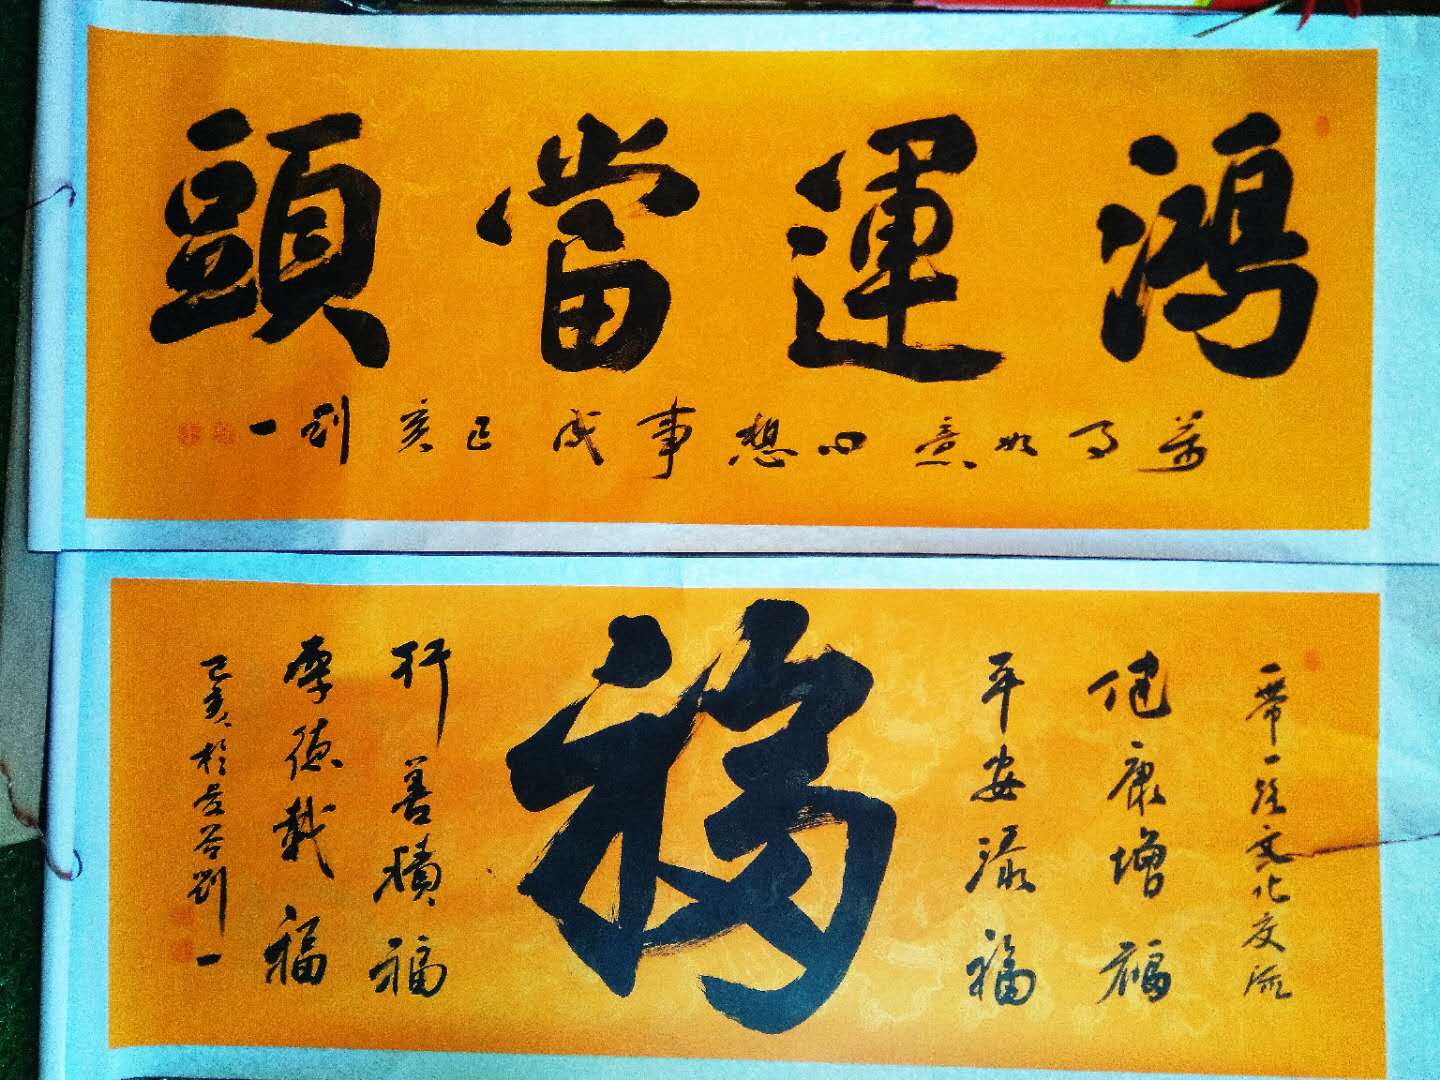 鴻運當頭
萬事如意心想事成己亥劉一
一帶一路文化交流
健康增福
平安添福
福
行善積福
厚德載福
己亥於谷劉一